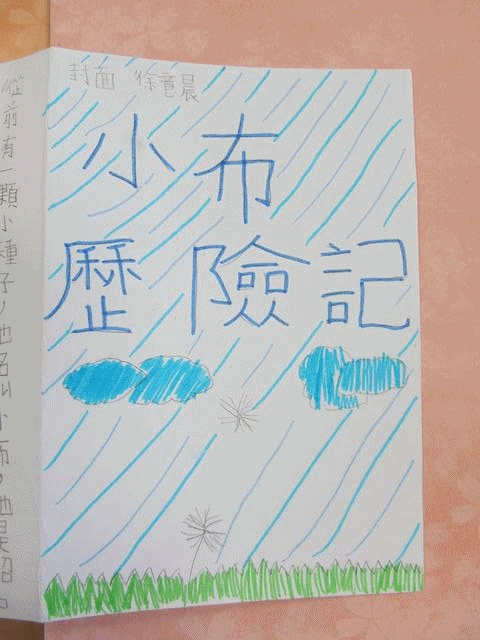 封面 徐意晨
小布
歷險記
從前有一顆小種子,他名叫小布,他是